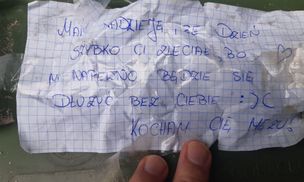 MAM NADZIEJĘ, ŻE DZIEŃ
SZYBKO CI ZLECIAŁ BO
M NAPEWNO BĘDZIE SIĘ
DŁUŻYĆ BEZ CIEBIE :)C
KOCHAM CIĘ MEZU!